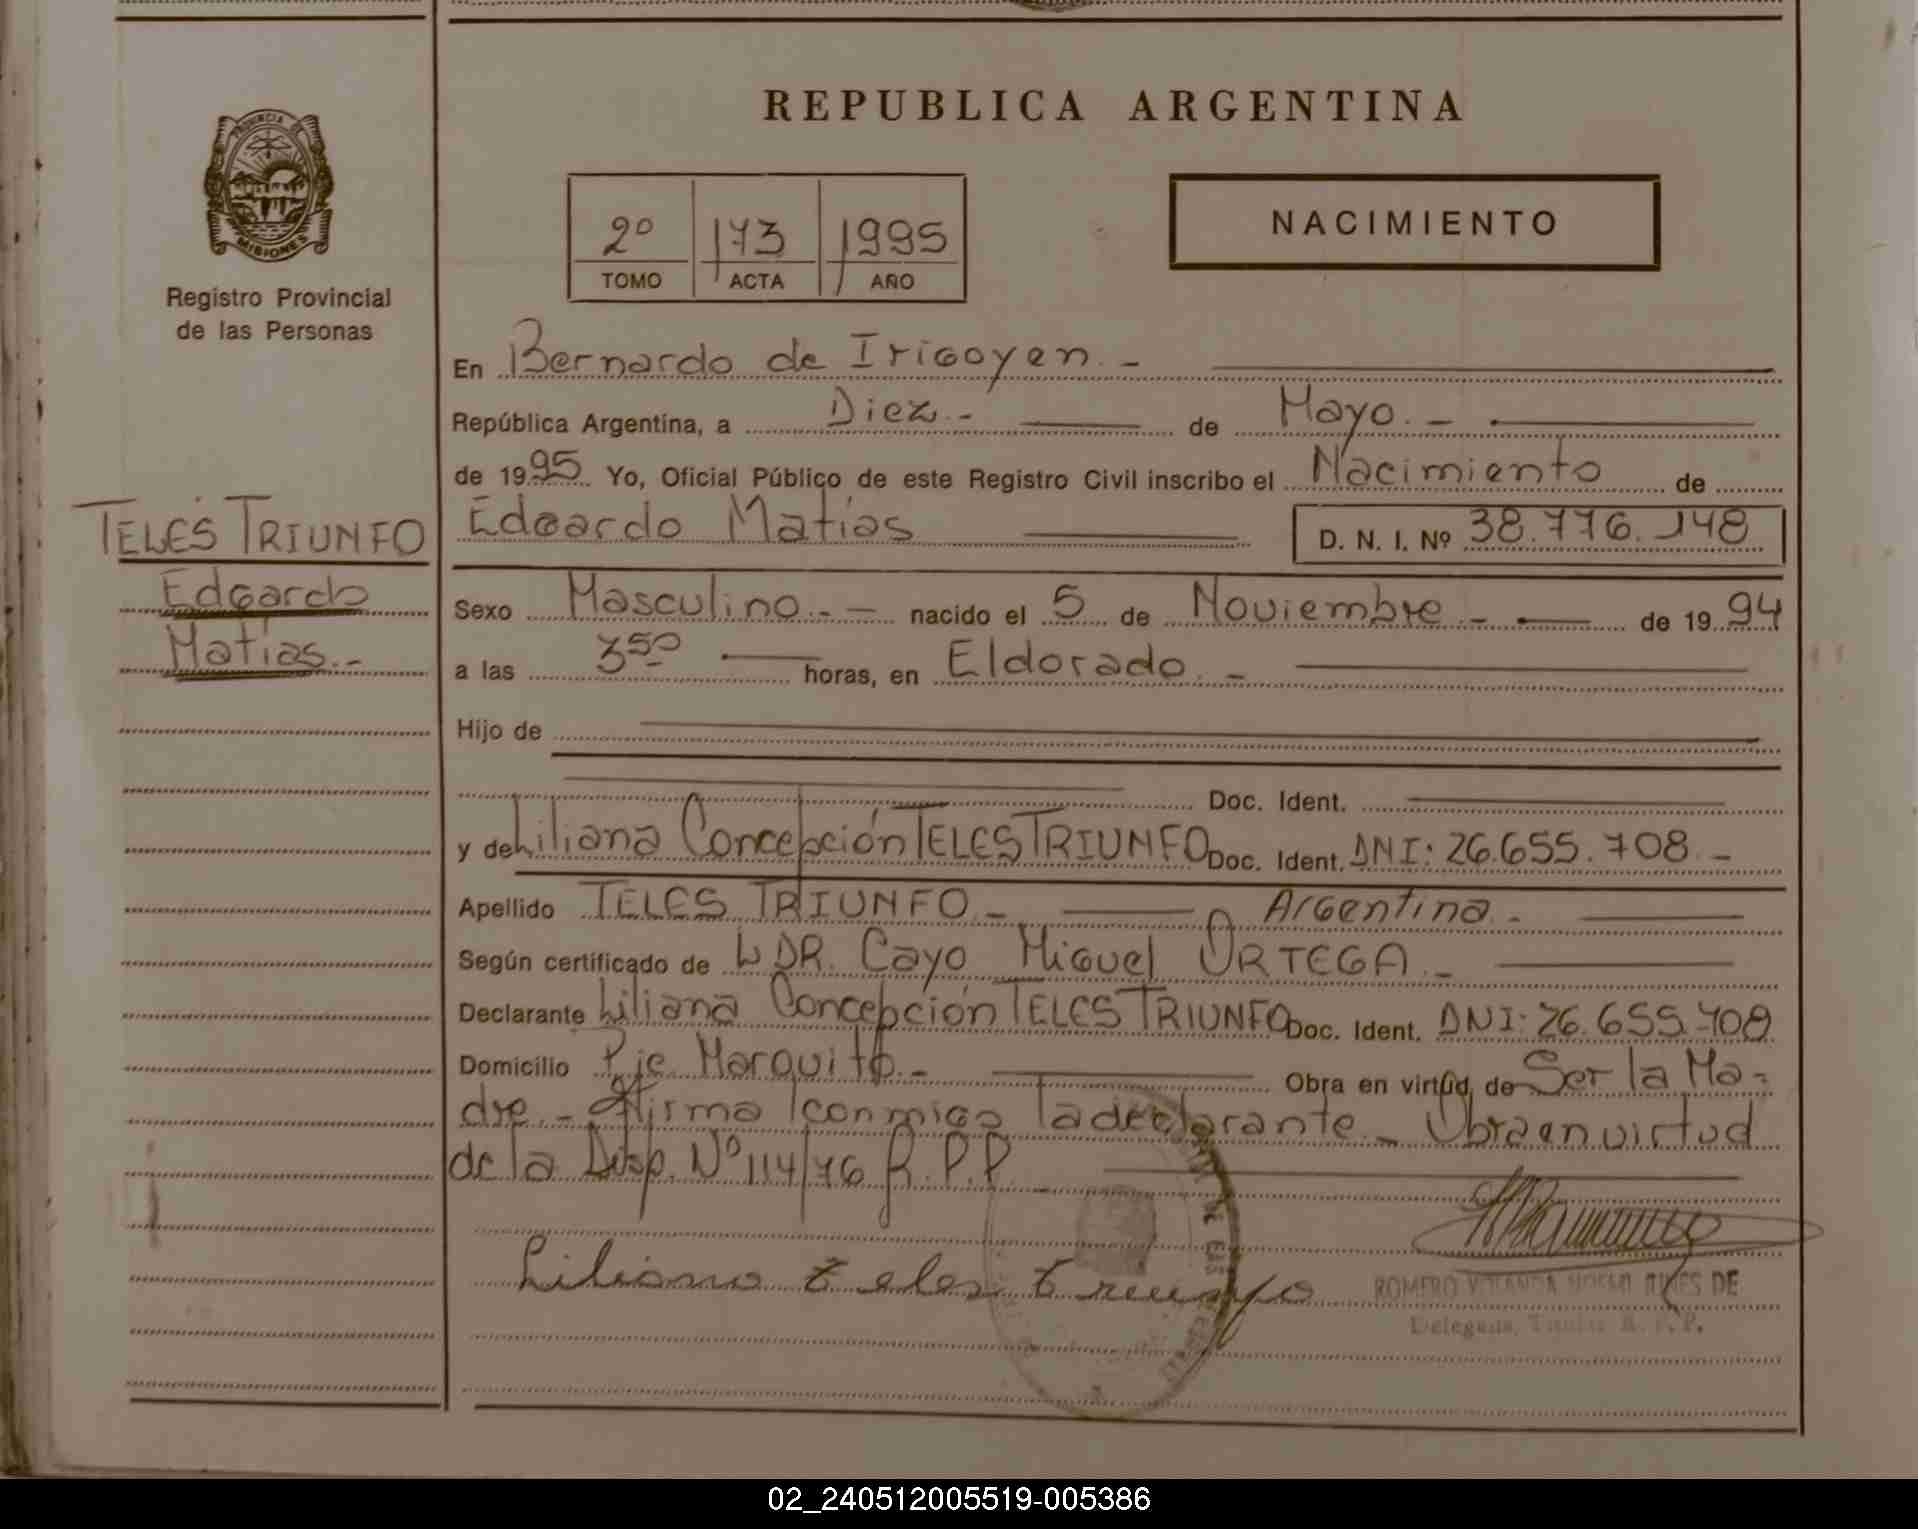 REPUBLICA ARGENTINA
PROVINCIA DE
MISIONES
Registro Provincial
de las Personas
2º 173 1995
TOMO ACTA AÑO
NACIMIENTO
En Bernardo de Irigoyen.-
República Argentina, a Diez.- de Mayo.-
de 1995 Yo, Oficial Público de este Registro Civil inscribo el Nacimiento de
TELES TRIUNFO
Edgardo
Matías.-
Edgardo Matías D. N. I. Nº 38.776.148
Sexo Masculino.- nacido el 5 de Noviembre.- de 1994
a las 3 50 horas, en Eldorado.-
Hijo de
Doc. Ident.
y de Liliana Concepción TELES TRIUNFO Doc. Ident. DNI: 26.655.708.-
Apellido TELES TRIUNFO.- Argentina.-
Según certificado de DR. Cayo Miguel ORTEGA.-
Declarante Liliana Concepción TELES TRIUNFO Doc. Ident. DNI: 26.655.708
Domicilio Pje Marquito.- Obra en virtud de Ser la Ma-
dre.- Firma conmigo la declarante.- Obra en virtud
de la Disp. Nº 114/76 R.P.P.-
Liliana teles triunfo
ROMERO YOLANDA NOEMI DE
Delegada Titular R. P. P.
02_240512005519-005386